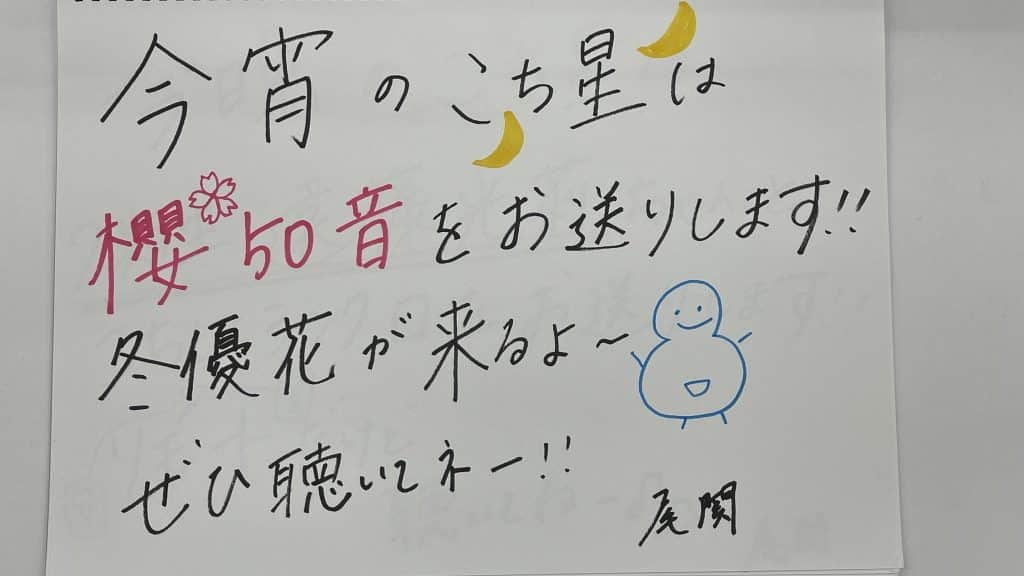 今宵のこち星は
櫻50音をお送りします!!
冬優花が来るよ～
ぜひ聴いてネー!!
尾関